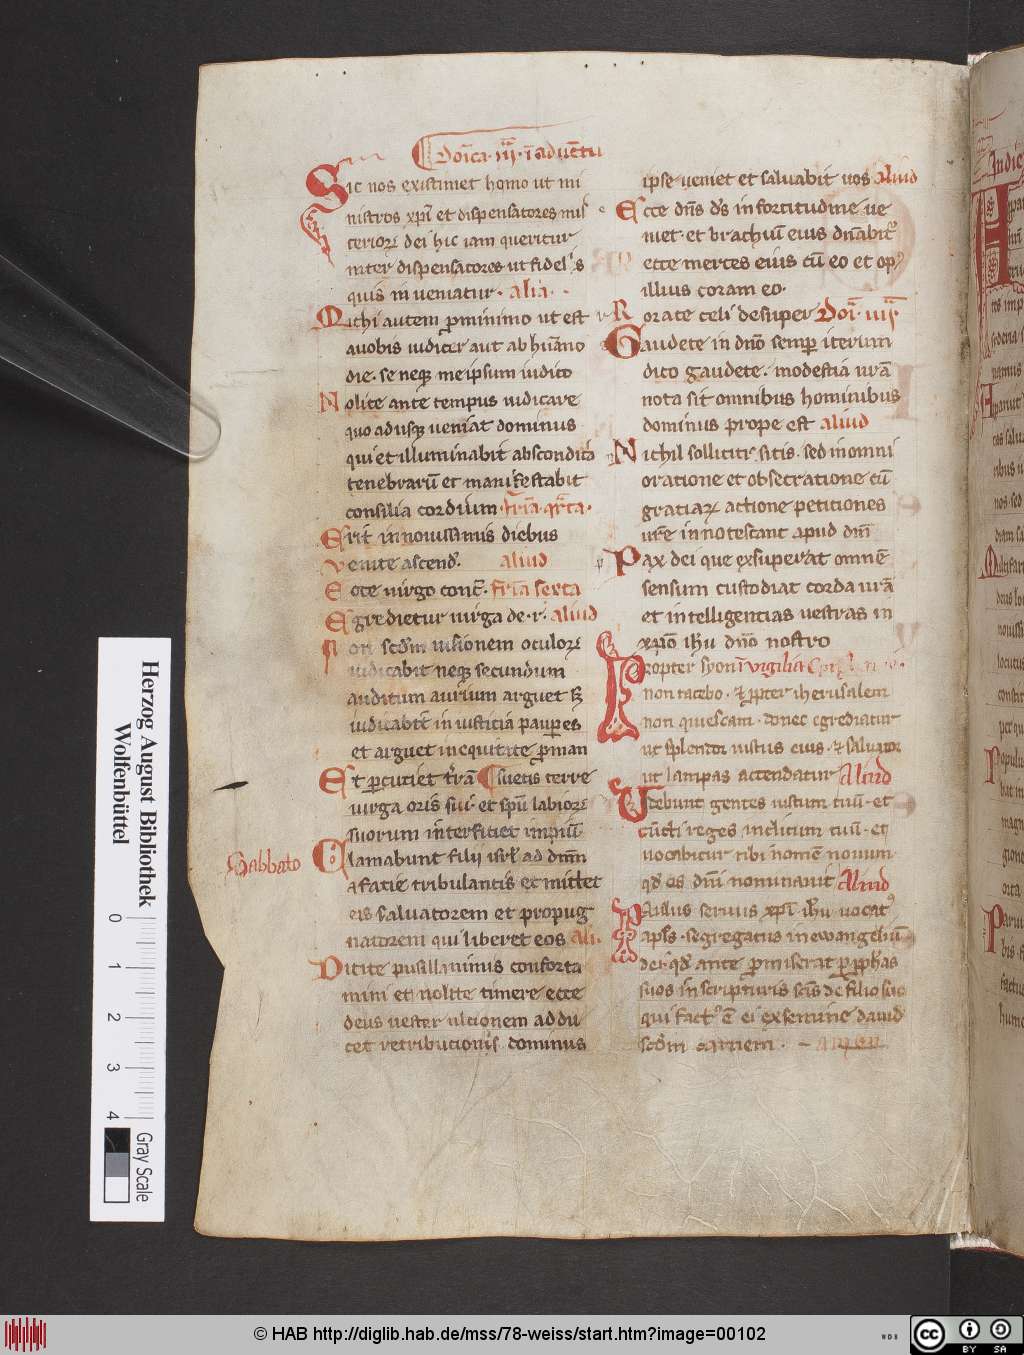 Doīca · III · ī aduētu
Sic nos existimet homo ut mi
nistros xp̄i et dispensatores mis
terioꝝ dei hic iam queritur
inter dispensatores ut fidelis
quis inueniatur · alia ·
Michi autem ꝓ minimo ut est
auobis iudicer aut ab hūano
die · se neqꝫ me ipsum iudico
Nolite ante tempus iudicare
quo adusqꝫ ueniat dominus
qui et illuminabit abscondita
tenebrarū et manifestabit
consilia cordium · fr̄ia · qr̄ta ·
Erit in nouissimis diebus
Venite ascend̄ · aliud
Ecce uirgo conc̄ · fr̄ia sexta
Egredietur uirga de · r · aliud
Non scd̄m uisionem oculoꝝ
iudicabit neqꝫ secundum
auditum aurium arguet sꝫ
iudicabit in iusticia pauꝑes
et arguet in equitate ꝓ man
Et ꝑcutiet t̄rā suetis terre
uirga oris sui · et sp̄u labioꝝ
suorum interficiet impiū
Sabbato
Clamabunt filii isrl̄ ad dn̄m
a facie tribulantis et mittet
eis saluatorem et propug
natorem qui liberet eos ali ·
Dicite pusillanimis conforta
mini et nolite timere ecce
deus uester ultionem addu
cet retributionis dominus
ipse ueniet et saluabit uos Aliud
Ecce dn̄s d̄s in fortitudine ue
niet · et brachiū eius dn̄abitᷣ
ecce merces eius cū eo et opꝰ
illius coram eo ·
Rorate celi desuper Doī · IIII ·
Gaudete in dn̄o semꝑ iterum
dico gaudete · modestia ur̄a
nota sit omnibus hominibus
dominus prope est aliud
Nichil solliciti sitis · sed in omni
oratione et obsecratione cū
gratiaꝝ actione petitiones
ur̄e innotescant apud dm̄
Pax dei que exsuperat omnē
sensum custodiat corda ur̄a
et intelligencias uestras in
xp̄o ih̄u dn̄o nostro
Propter syon vigilia
non tacebo · et ꝓpter iherusalem
non quiescam · donec egrediatur
ut splendor iustus eius · et saluator
ut lampas accendatur Aliud
Uidebunt gentes iustum tuū · et
cūcti reges inclitum tuū · et
uocabitur tibi nomē nouum
qd̄ os dn̄i nominauit Aliud
Paulus seruus xp̄i ih̄u uocatꝰ
apl̄s · segregatus in ewangeliū
dei qd̄ ante ꝓmiserat ꝑ ꝓph̄as
suos in scripturis sc̄is de filio suo
qui factꝰ ē ei ex semine dauid
scd̄m carnem ·
Herzog August Bibliothek
Wolfenbüttel
0 1 2 3 4
Gray Scale
© HAB http://diglib.hab.de/mss/78-weiss/start.htm?image=00102
WDB
cc BY SA